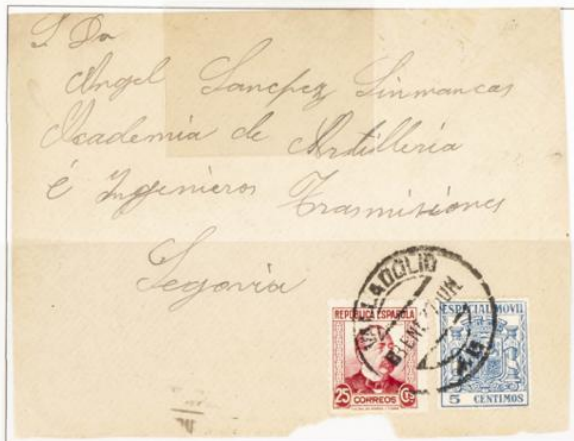 S. Dn
Angel Sanchez Sinmancas
Academia de Artilleria
é Ingenieros Trasmisiones
Segovia
VALLADOLID
REPÚBLICA ESPAÑOLA
25 Cs
CORREOS
ESPECIAL MÓVIL
5 CENTIMOS